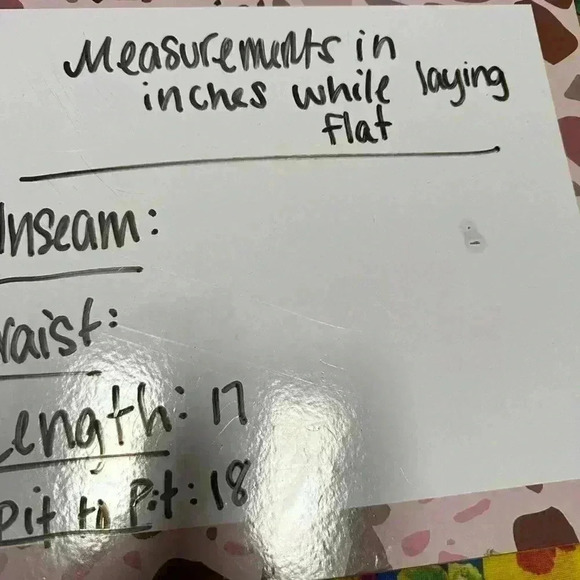 Measurements in
inches while laying
flat
Inseam:
Waist:
Length: 17
Pit to Pit: 18